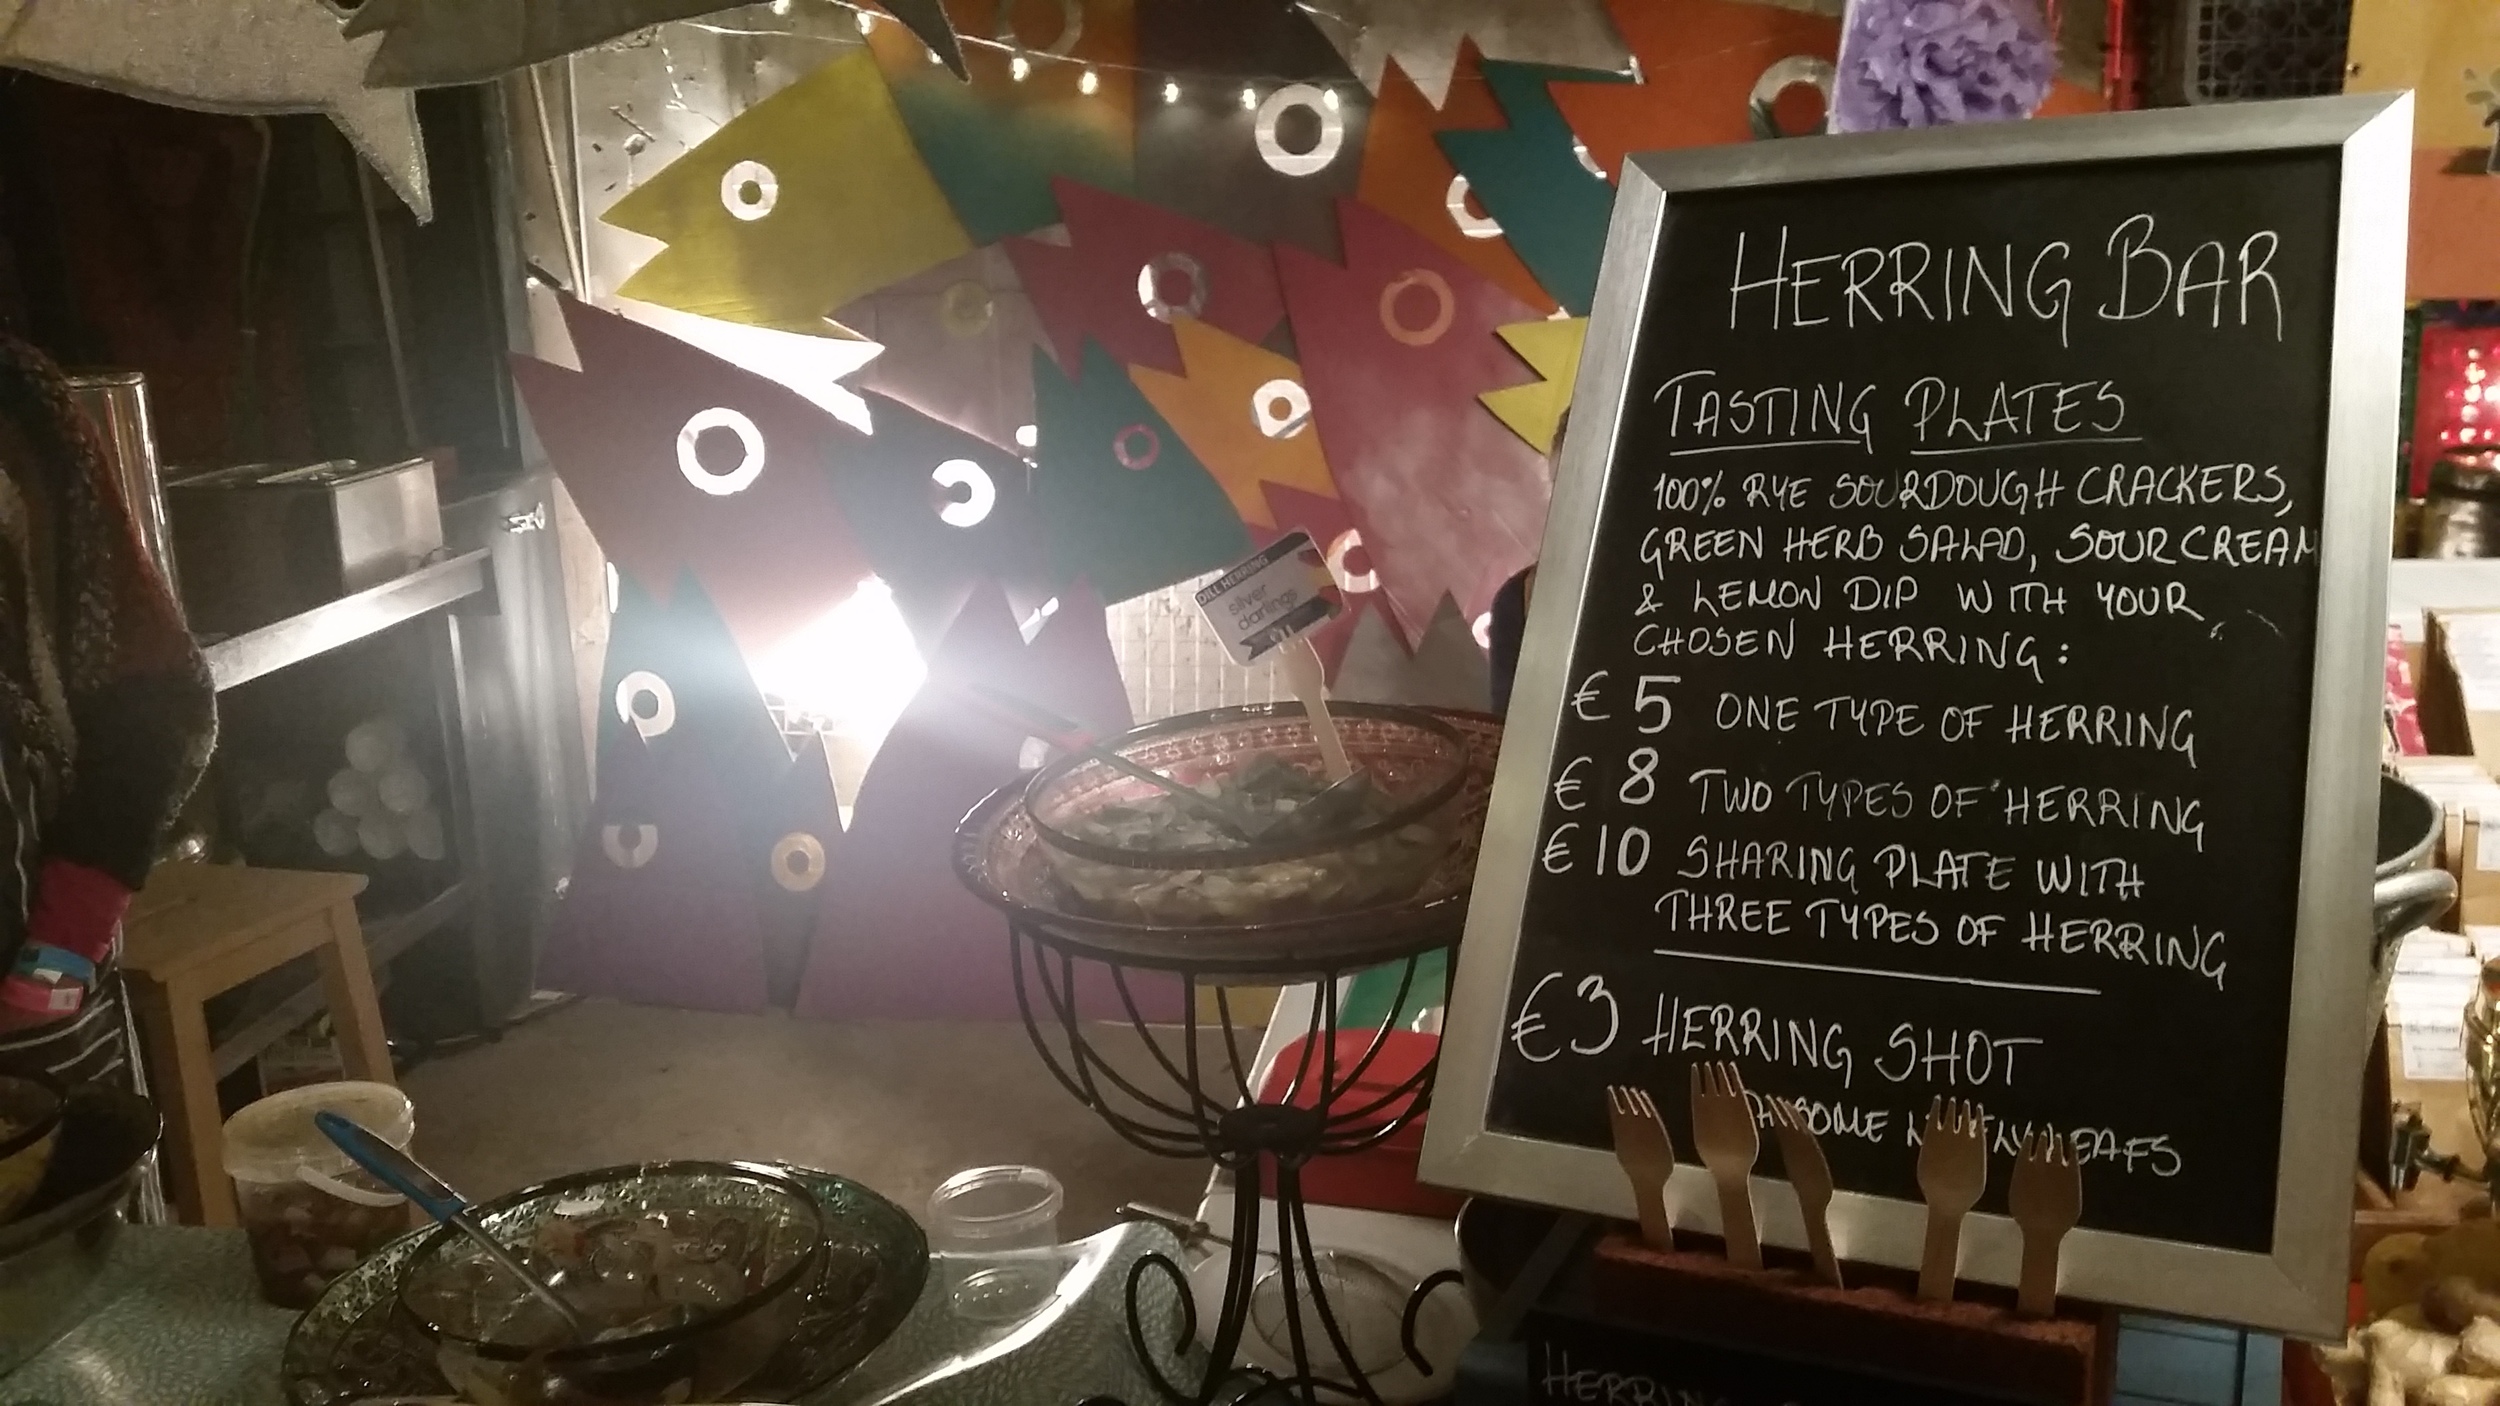 HERRING BAR
TASTING PLATES
100% RYE SOURDOUGH CRACKERS,
GREEN HERB SALAD, SOUR CREAM
& LEMON DIP WITH YOUR
CHOSEN HERRING:
€ 5 ONE TYPE OF HERRING
€ 8 TWO TYPES OF HERRING
€ 10 SHARING PLATE WITH
THREE TYPES OF HERRING
€3 HERRING SHOT
SOME LEAFS
DILL HERRING
silver
darlings
HERRING